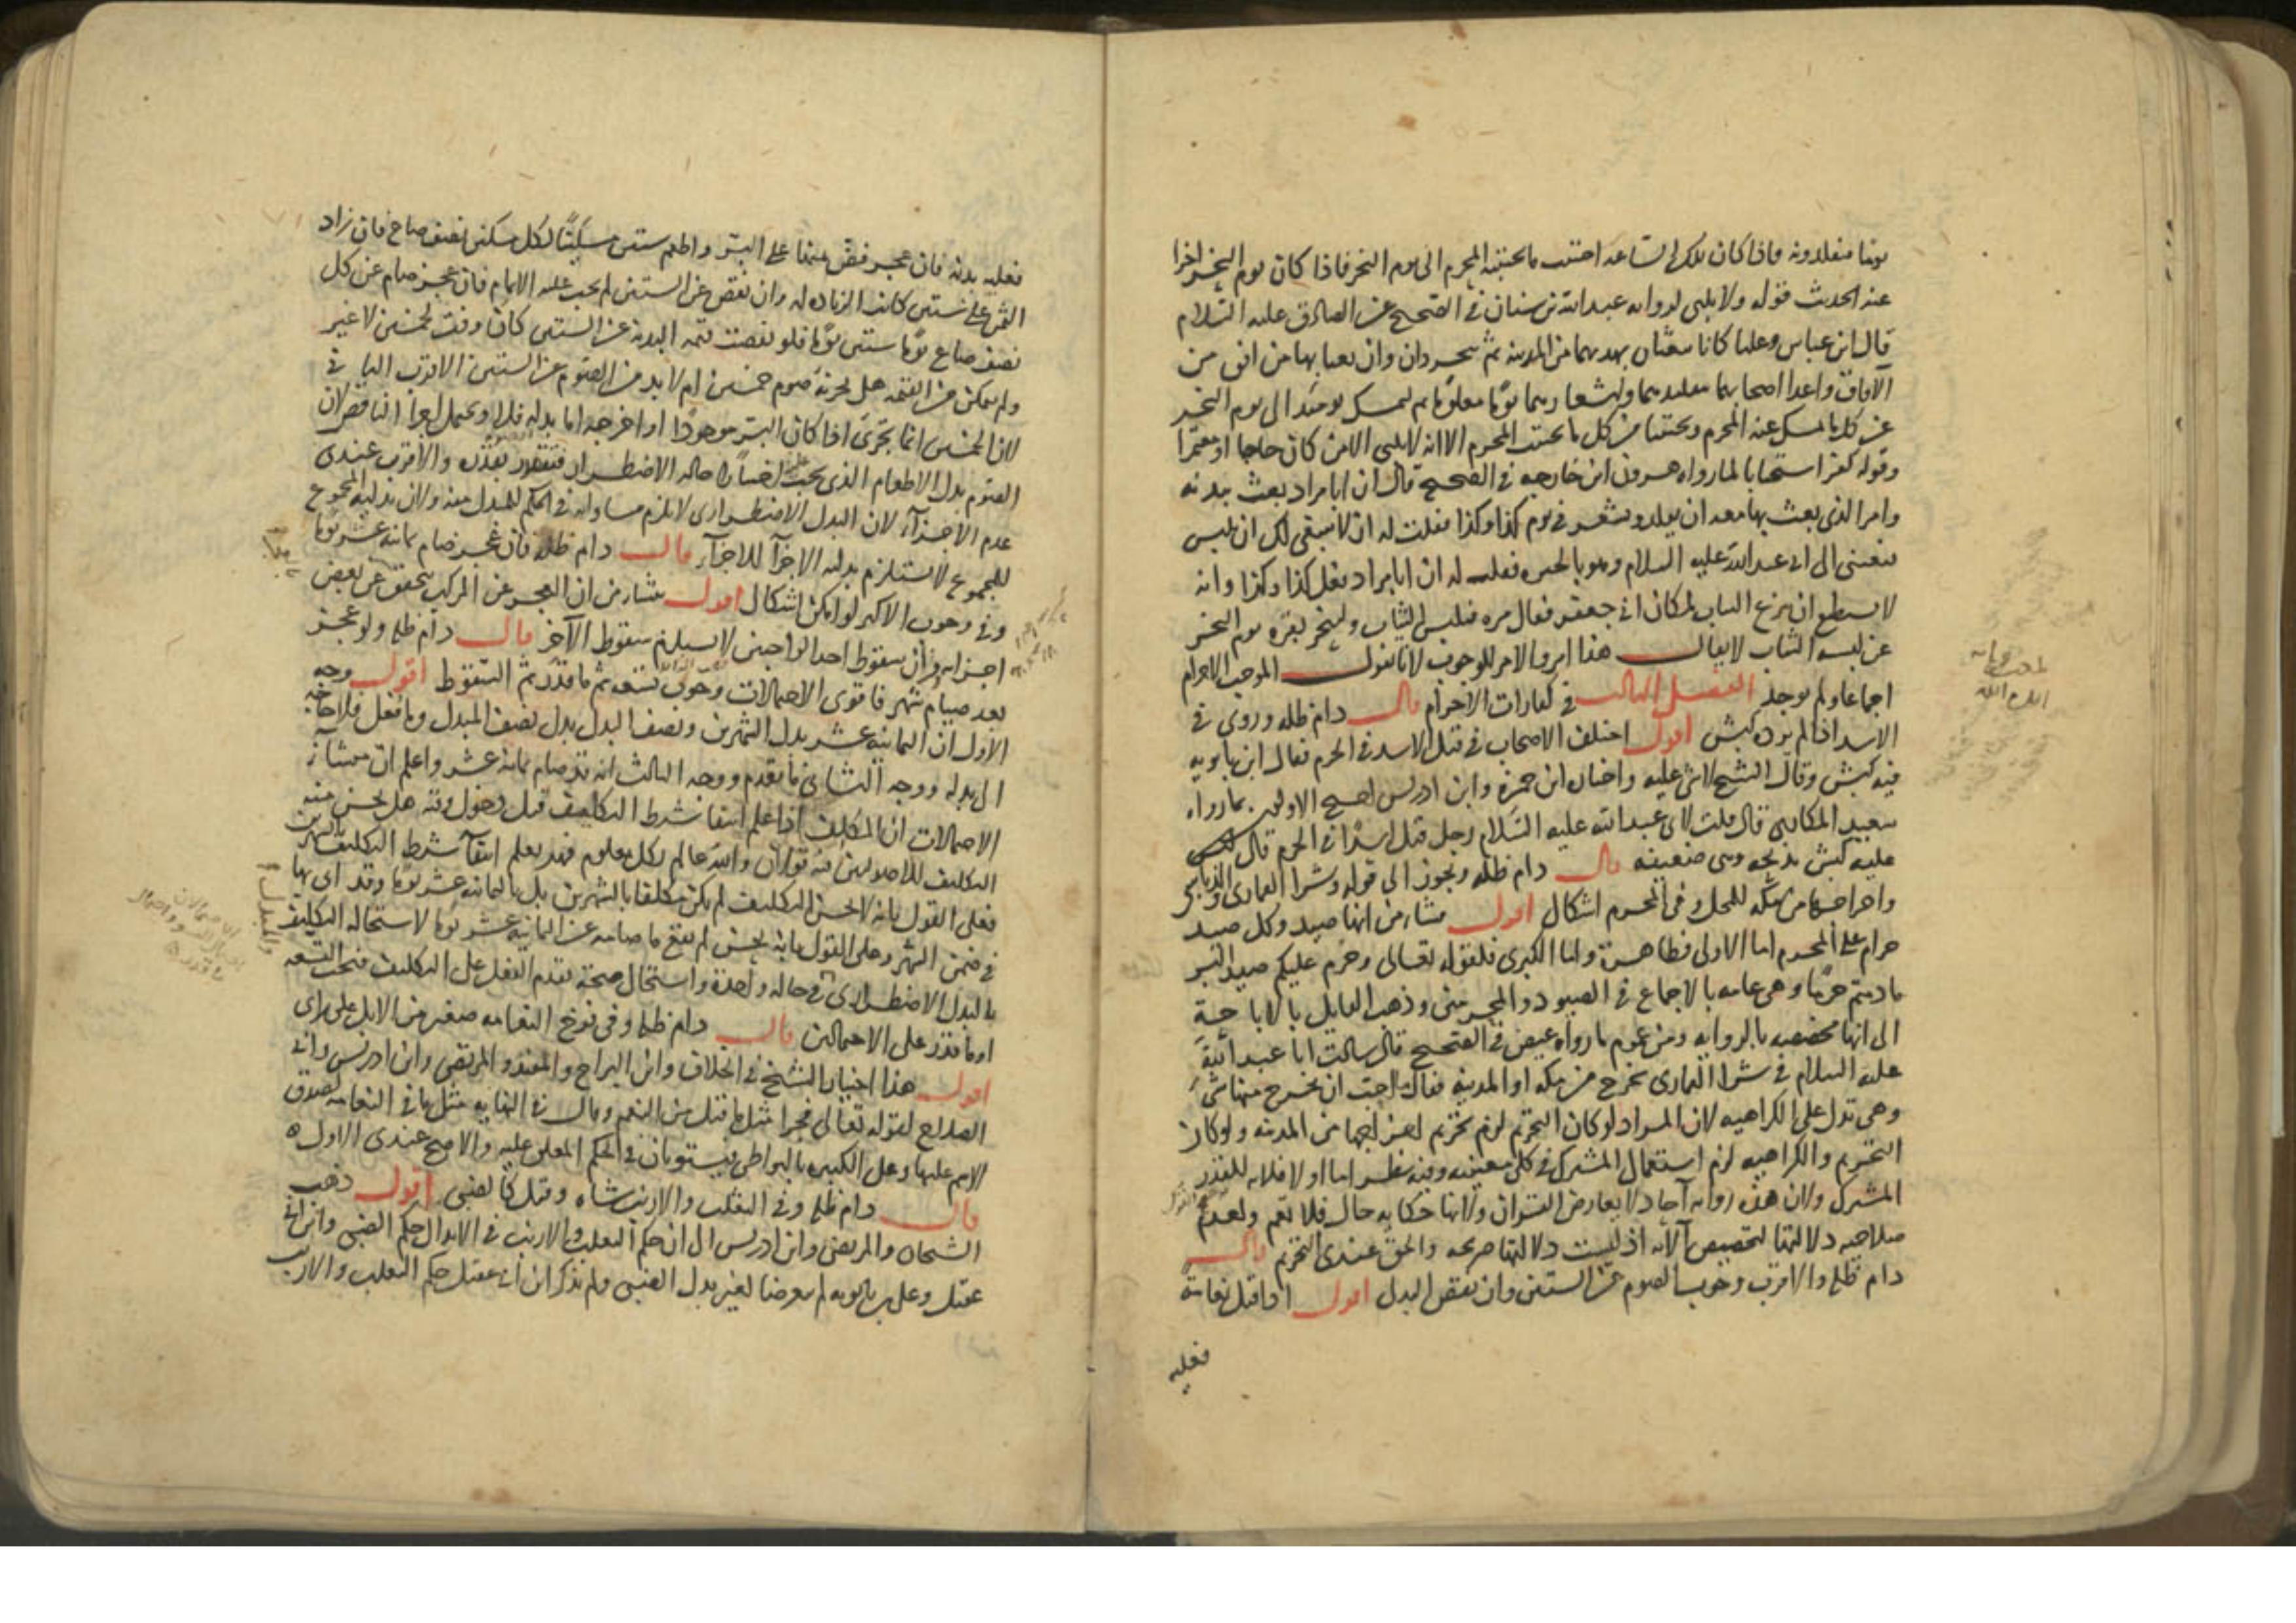 يوما يقلدونه فاذا كان تلك الساعة اجتنب ما يجتنبه المحرم الى يوم النحر فاذا كان يوم النحر اجزأ
عنه الحديث قوله ولا يلبي لرواية عبد الله بن سنان في الصحيح عن الصادق عليه السلام
قال ابن عباس وعليا كانا يبعثان بهديهما من المدينة ثم يتجردان وان بعثا بها من افق من
الآفاق واعدا اصحابهما بتقليدهما واشعارهما يوما معلوما ثم ليمسك يومئذ الى يوم النحر
عن كل ما يمسك عنه المحرم ويجتنبا من كل ما يجتنب المحرم الا انه لا يلبي الا من كان حاجا او معتمرا
وقوله كفر استحبابا لما رواه هرون ابن خارجه في الصحيح قال ان ابا مراد بعث ببدنه
وامر الذي بعث بها معه ان يقلد ويشعر في يوم كذا وكذا فقلت له انه لا ينبغي لك ان تلبس
فبعثني الى ابي عبد الله عليه السلام وهو بالحيره فقلت له ان ابا مراد فعل كذا وكذا وانه
لا يستطيع ان يدع الثياب لمكان ابي جعفر فقال مره فليلبس الثياب ولينحر بقره يوم النحر
عن لبسه الثياب لا يقال هذا امر والامر للوجوب لانا نقول الموجب الاحرام
اجماعا ولم يوجد الفصل الثالث في كفارات الاحرام قال دام ظله وروي في
الاسد اذا لم يرده كبش اقول اختلف الاصحاب في قتل الاسد في الحرم فقال ابن بابويه
فيه كبش وقال الشيخ لا شي عليه واختار ابن حمزة وابن ادريس احتج الاولون بما رواه
سعيد المكاري قال قلت لابي عبد الله عليه السلام رجل قتل اسدا في الحرم قال
عليه كبش يذبحه وهي ضعيفه قال دام ظله ويجوز الى قوله وشرا القماري والدباسي
واخراجها من مكه للمحل وفي المحرم اشكال اقول منشاه من انها صيد وكل صيد
حرام على المحرم اما الاولى فظاهرة واما الكبرى فلقوله تعالى وحرم عليكم صيد البر
ما دمتم حرما وهي عامه بالاجماع في الصيود والمحرمين وذهب القايل بالاباحة
الى انها مخصصه بالرواية ومن عموم ما رواه عيص في الصحيح قال سالت ابا عبد الله
عليه السلام في شرا القماري تخرج من مكه او المدينة فقال ما احب ان يخرج منها شي
وهي تدل على الكراهيه لان المراد لو كان التحريم لزم تحريم اخراجها من المدينه ولو كان
التحريم والكراهيه لزم استعمال المشترك في كلي معنييه وفيه نظر اما اولا فلانه للقدر
المشترك ولان هذه رواية آحاد لا يعارض القران ولانها حكاية حال فلا تعم ولعدم
صلاحيه دلالتها لتخصيص الآية اذ ليست دلالتها صريحه والحق عندي التحريم قال
دام ظله والاقرب وجوب الصوم عن الستين وان نقص البدل اقول اذا قتل نعامة
فعليه
فعليه بدنه فان عجز فض ثمنها على البر واطعم ستين مسكينا لكل مسكين نصف صاع فان زاد
الثمن على ستين كانت الزيادة له وان نقص عن الستين لم يجب عليه الاتمام فان عجز صام عن كل
نصف صاع يوما ستين يوما فلو نقصت قيمة البدنه عن الستين كان وفت لخمسين لا غير
ولم يتمكن من القيمه هل يجزيه صوم خمسين ام لا بد من الصوم عن الستين الاقرب الثاني
لان الخمسين انما يجزي اذا كان البر موجودا او اخرجه اما بدله فلا ويحتمل اجزا الناقص لان
الصوم بدل الاطعام الذي يجب اخراجه حاله الاضطرار فيتقدر بقدره والاقرب عندي
عدم الاجزآء لان البدل الاضطراري لا يلزم مساواته في الحكم للمبدل منه ولان بدليه المجموع
للمجموع لا يستلزم بدليه الاجزآ للاجزآء قال دام ظله فان عجز صام ثمانيه عشر يوما
وفي وجوب الاكثر لو امكن اشكال اقول منشاه من ان العجز عن المركب يتحقق عن بعض
اجزائه وان سقوط احد الواجبين لا يستلزم سقوط الآخر قال دام ظله ولو عجز
بعد صيام شهر فاقوى الاحتمالات وجوب تسعه ثم ما قدر ثم السقوط اقول وجه
الاول ان الثمانيه عشر بدل الشهرين ونصف البدل بدل نصف المبدل
الى بدله ووجه الثاني ما تقدم ووجه الثالث انه قد صام ثمانيه عشر واعلم ان منشا
الاحتمالات ان المكلف اذا علم انتفا شرط التكليف قبل دخول وقته هل يحسن منه
التكليف للاصوليين فيه قولان والله عالم بكل معلوم فقد يعلم انتفآ شرط التكليف بالشهرين
فعلى القول بانه لا يحسن التكليف لم يكن مكلفا بالشهرين بل بالثمانيه عشر يوما وقد اتى بها
في ضمن الشهر وعلى القول بانه يحسن لم يقع ما صامه عن الثمانيه عشر يوما لاستحاله التكليف
بالبدل الاضطراري في حاله واحدة واستحاله صحة تقدم الفعل على التكليف فيجب التسعه
او ما قدر على الاحتمالين قال دام ظله وفي فرخ النعامه صغير من الابل على راي
اقول هذا اختيار الشيخ في الخلاف وابن البراج والمفيد والمرتضى وابن ادريس وابي
الصلاح لقوله تعالى فجزا مثل ما قتل من النعم وقال في النهايه مثل ما في النعامه لصدق
الاسم عليها وعلى الكبيره بالتواطي فيستويان في الحكم المعلق عليه والاصح عندي الاول
قال دام ظله وفي الثعلب والارنب شاه وقيل كالظبي اقول ذهب
الشيخان والمرتضى وابن ادريس الى ان حكم الثعلب والارنب في الابدال حكم الظبي وابن ابي
عقيل وعلي بن بابويه لم يتعرضا لغير بدل الظبي ولم يذكر ابن ابي عقيل حكم الثعلب والارنب